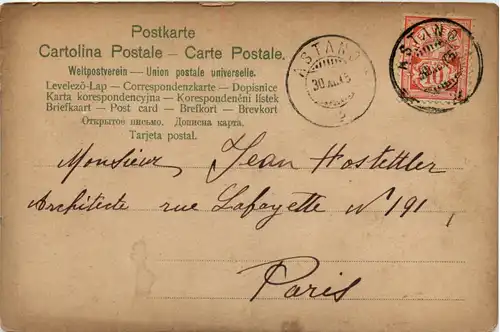 Postkarte
Cartolina Postale – Carte Postale.
Weltpostverein – Union postale universelle.
Levelező-Lap – Correspondenzkarte – Dopisnice
Karta korespondencyjna – Korespondenční lístek
Briefkaart – Post card – Brefkort – Brevkort
Открытое письмо. Дописна карта.
Tarjeta postal.
ASTANO
ASTANO
Monsieur Jean Hostettler
Architecte rue Lafayette N° 191,
Paris